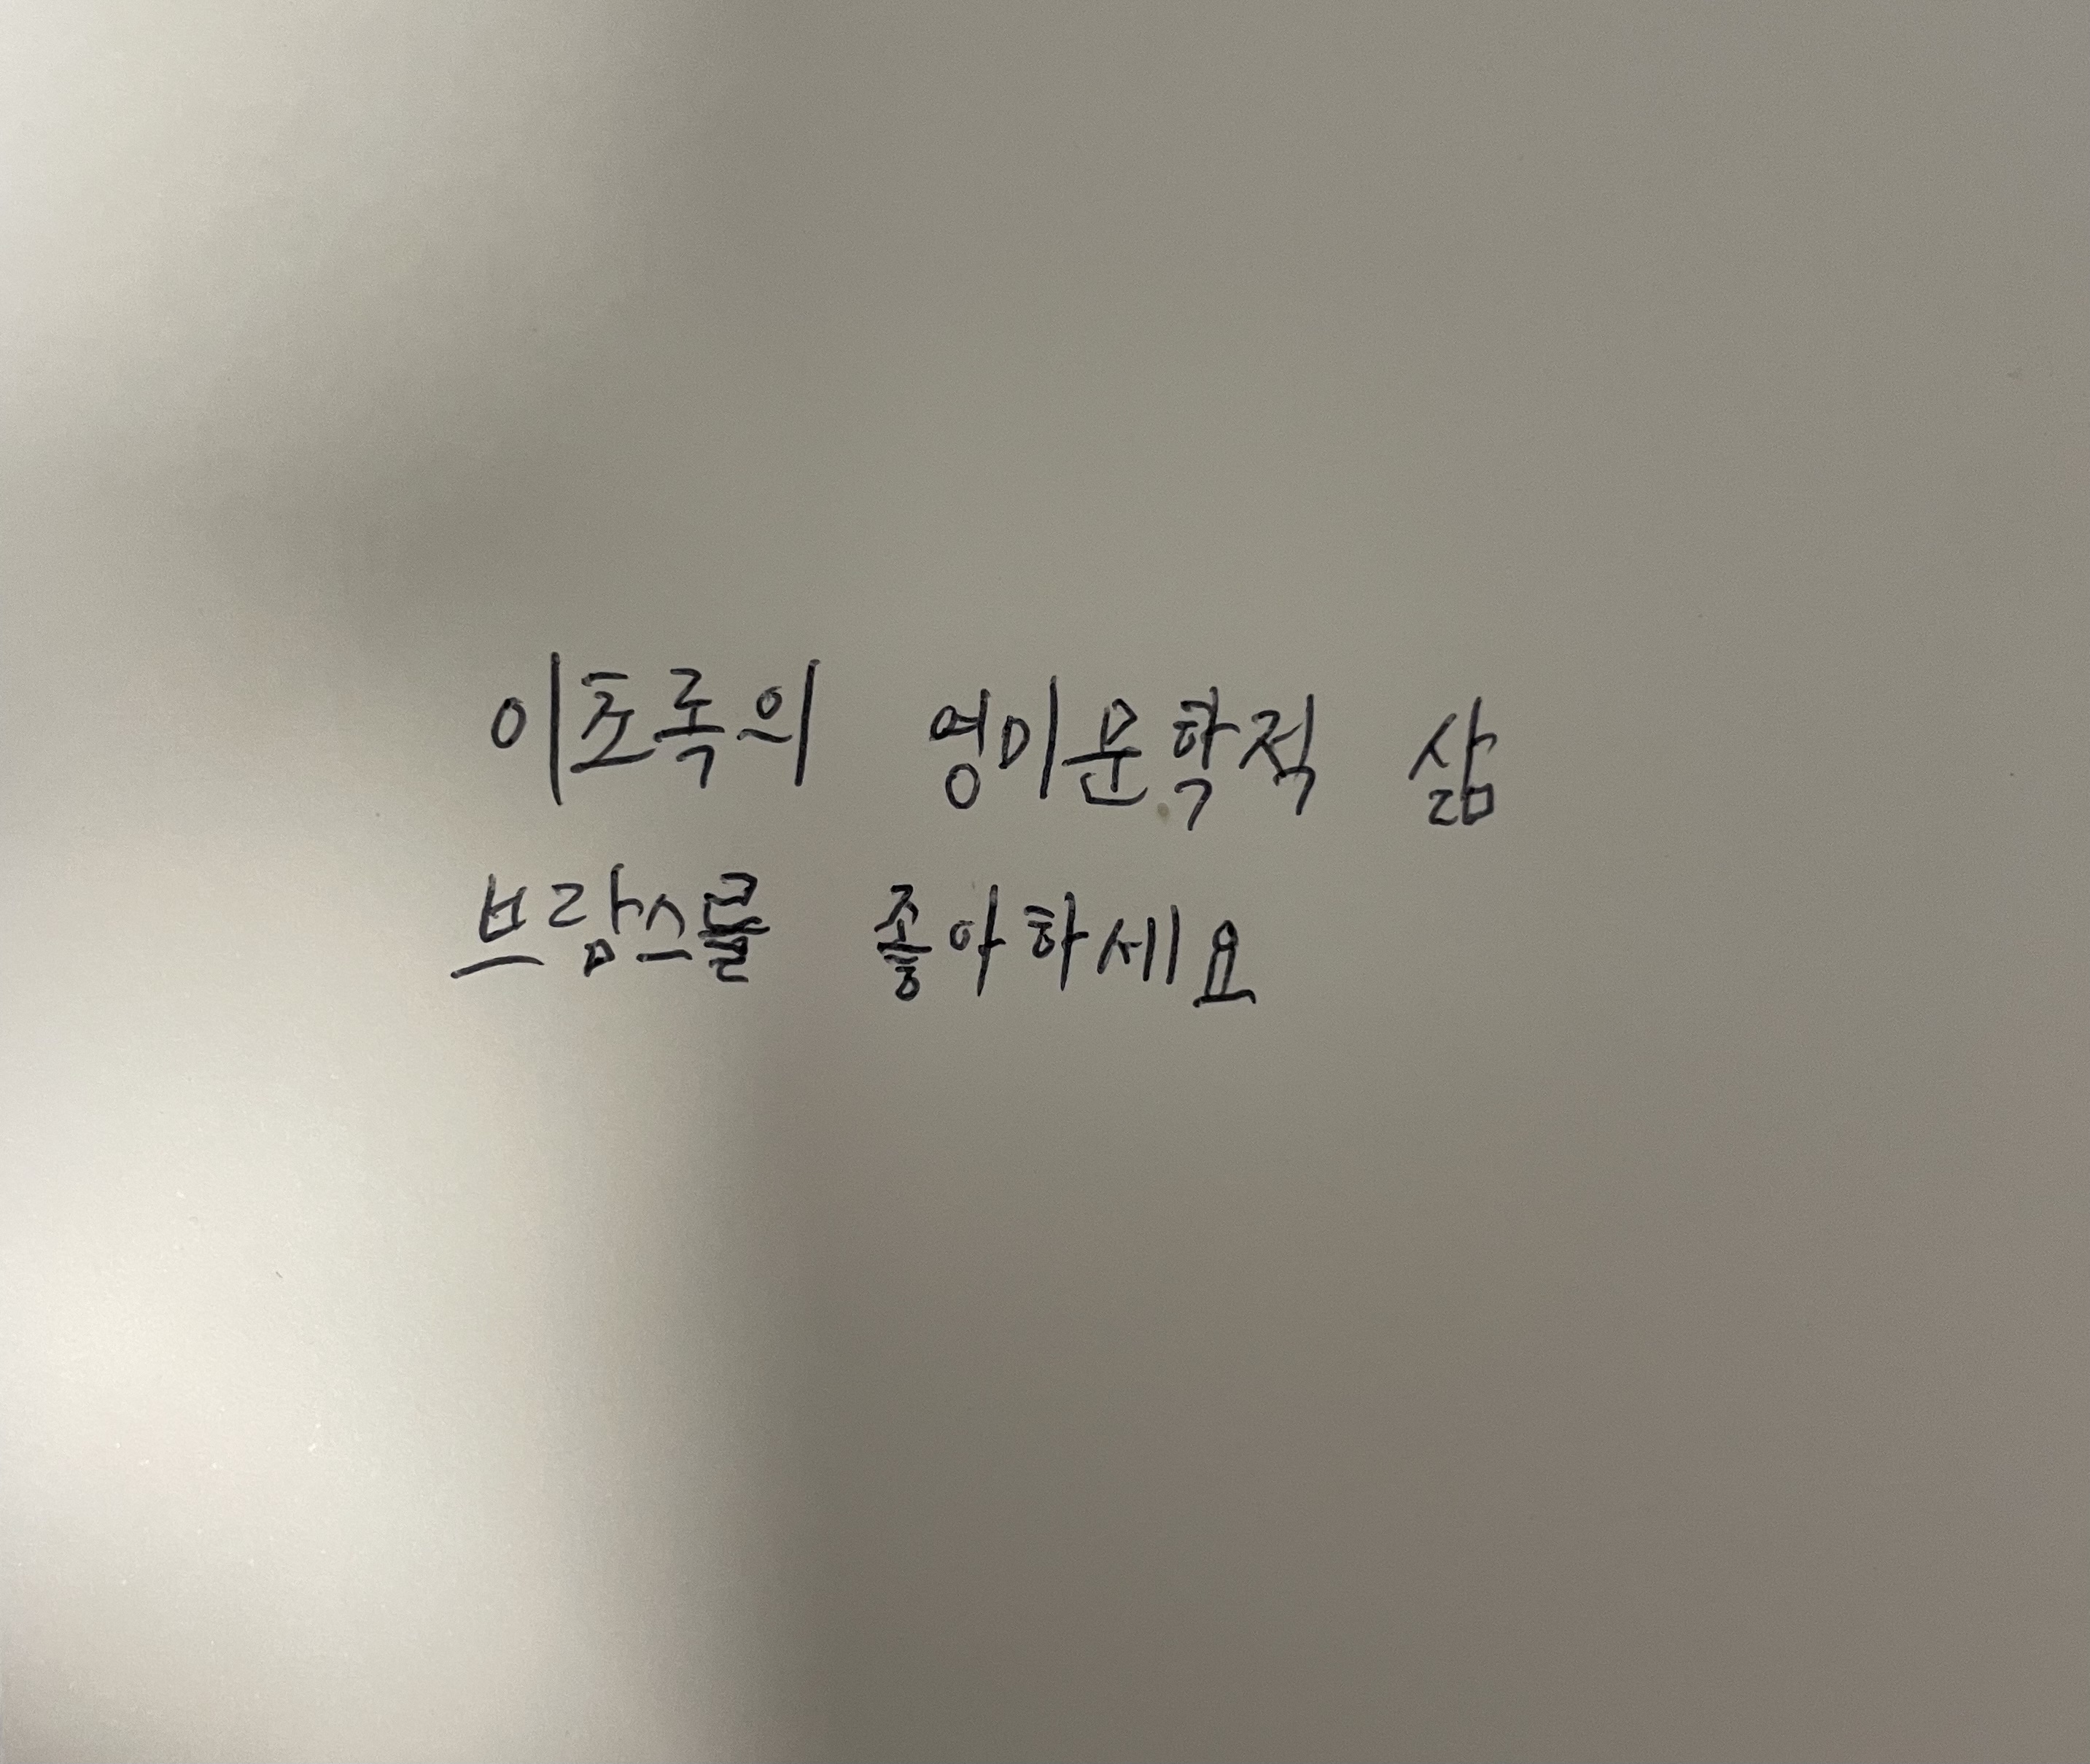 이초록의 영미문학적 삶
브람스를 좋아하세요